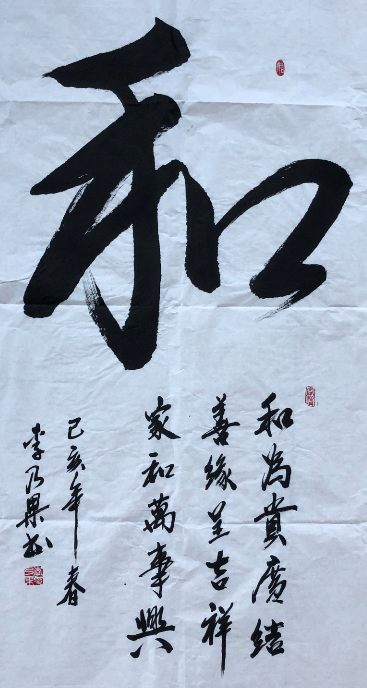 和
和為貴廣結
善緣呈吉祥
家和萬事興
己亥年春
李乃杲书